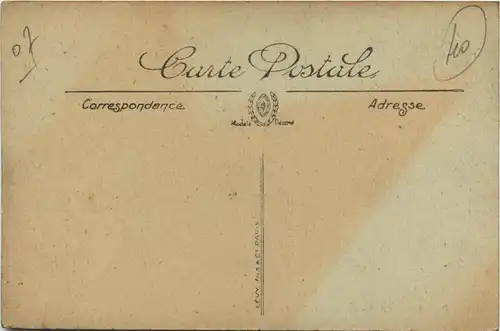 07
Carte Postale
Correspondance
Adresse
Modèle Déposé
LÉVY FILS & Cie PARIS